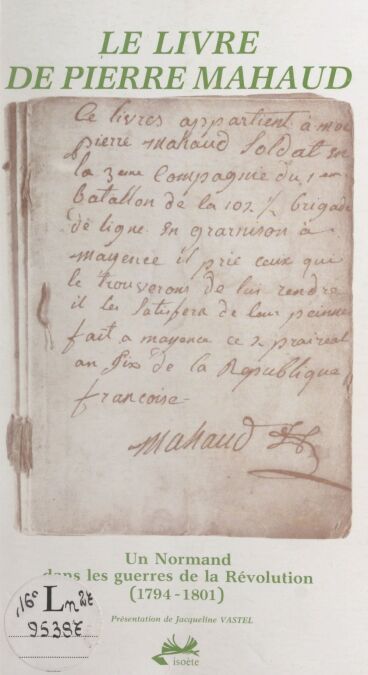 LE LIVRE
DE PIERRE MAHAUD
Ce livres appartient à moi
pierre Mahaud Soldat en
la 3eme Compagnie du 1er
Batallon de la 102 1/2 brigade
de ligne en grarnison à
mayence il prie ceux qui
le trouverons de lui rendre
il les Satisfera de leur peinne
fait a mayence ce 2 prairéal
an Six de la Republique
francoise
Mahaud
Un Normand
dans les guerres de la Révolution
(1794-1801)
Présentation de Jacqueline VASTEL
isoète
16° L n 27
95387